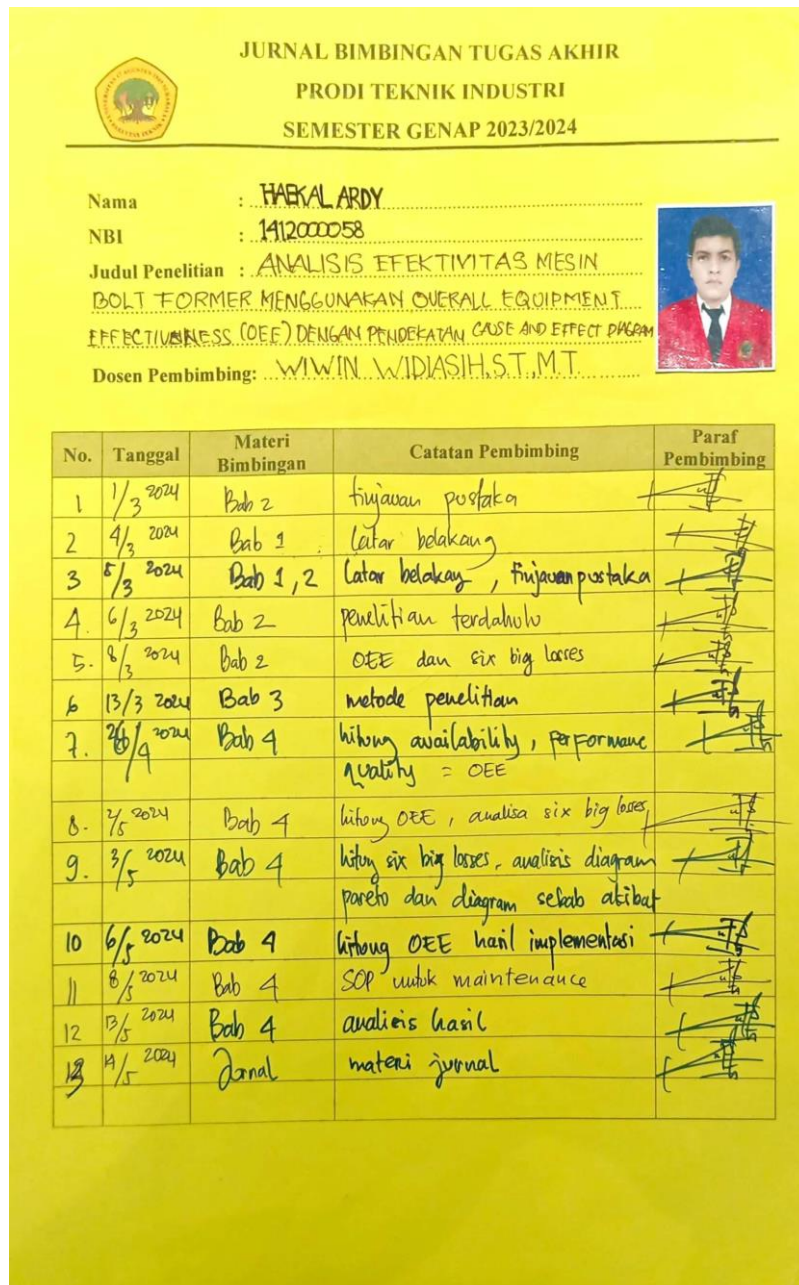 JURNAL BIMBINGAN TUGAS AKHIR
PRODI TEKNIK INDUSTRI
SEMESTER GENAP 2023/2024
Nama : HAEKAL ARDY
NBI : 1412000058
Judul Penelitian : ANALISIS EFEKTIVITAS MESIN
BOLT FORMER MENGGUNAKAN OVERALL EQUIPMENT
EFFECTIVENESS (OEE) DENGAN PENDEKATAN CAUSE AND EFFECT DIAGRAM
Dosen Pembimbing: WIWIN WIDIASIH, S.T., M.T.
No. Tanggal Materi Bimbingan Catatan Pembimbing Paraf Pembimbing
1 1/3 2024 Bab 2 tinjauan pustaka
2 4/3 2024 Bab 1 latar belakang
3 5/3 2024 Bab 1, 2 latar belakag, tinjauan pustaka
4. 6/3 2024 Bab 2 penelitian terdahulu
5. 8/3 2024 Bab 2 OEE dan six big losses
6 13/3 2024 Bab 3 metode penelitian
7. /4 2024 Bab 4 hitung availability, performanc
quality = OEE
8. 2/5 2024 Bab 4 hitung OEE, analisa six big losses,
9. 3/5 2024 Bab 4 hitung six big losses, analisis diagram
pareto dan diagram sebab akibat
10 6/5 2024 Bab 4 hitung OEE hasil implementasi
11 8/5 2024 Bab 4 SOP untuk maintenance
12 13/5 2024 Bab 4 analisis hasil
13 14/5 2024 Jurnal materi jurnal